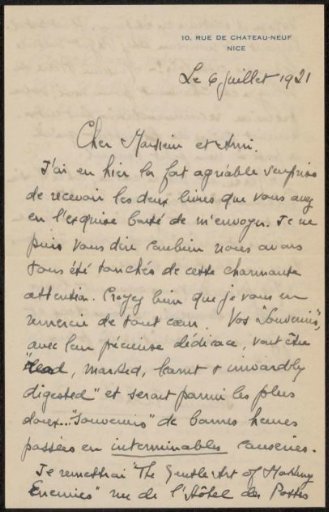 10, RUE DE CHATEAU-NEUF
NICE
Le 6 juillet 1921
Cher Monsieur et Ami.
J'ai eu hier la fort agréable surprise
de recevoir les deux livres que vous avez
eu l'exquise bonté de m'envoyer. Je ne
puis vous dire combien nous avons
tous été touchés de cette charmante
attention. Croyez bien que je vous en
remercie de tout cœur. Vos "Souvenirs",
avec leur précieuse dédicace, vont être
"read, marked, learnt & inwardly
digested" et seront parmi les plus
doux "souvenirs" de bonnes heures
passées en interminables causeries.
Je remettrai "The Gentle Art of Making
Enemies" rue de l'Hôtel des Postes